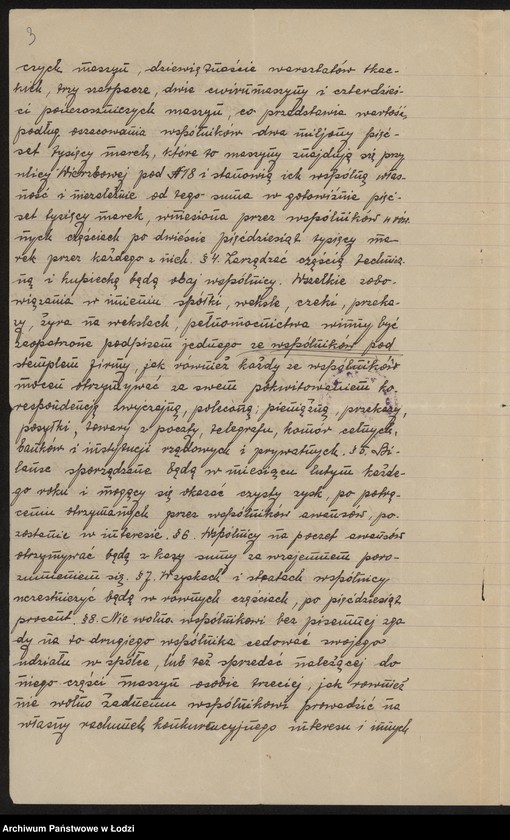 3
czych maszyn, dziewiętnaście warsztatów tkac-
kich, trzy szarpacze, dwie cwirnmaszyny i czterdzieś-
ci pończoszniczych maszyn, co przedstawia wartość,
podług oszacowania wspólników dwa miljony pięć-
set tysięcy marek, które to maszyny znajdują się przy
ulicy Wierzbowej pod N18 i stanowią ich wspólną włas-
ność i niezależnie od tego suma w gotowiźnie pięć-
set tysięcy marek, wniesiona przez wspólników w rów-
nych częściach po dwieście pięćdziesiąt tysięcy ma-
rek przez każdego z nich. § 4. Zarządzać częścią technicz-
ną i kupiecką będą obaj wspólnicy. Wszelkie zobo-
wiązania w imieniu spółki, weksle, czeki, przeka-
zy, żyra na wekslach, pełnomocnictwa winny być
zaopatrzone podpisem jednego ze wspólników pod
stemplem firmy, jak również każdy ze wspólników
mocen otrzymywać za swem pokwitowaniem ko-
respondencję zwyczajną, poleconą, pieniężną, przekazy,
posyłki, towary z poczty, telegrafu, komór celnych,
banków i instytucji rządowych i prywatnych. § 5. Bi-
lanse sporządzane będą w miesiącu lutym każde-
go roku i mogący się okazać czysty zysk, po potrą-
ceniu otrzymanych przez wspólników awansów, po-
zostanie w interesie. § 6. Wspólnicy na poczet awansów
otrzymywać będą z kasy sumy za wzajemnem poro-
zumieniem się. § 7. W zyskach i stratach wspólnicy
uczestniczyć będą w równych częściach, po pięćdziesiąt
procent. § 8. Nie wolno wspólnikowi bez pisemnej zgo-
dy na to drugiego wspólnika cedować swojego
udziału w spółce, lub też sprzedać należącej do
niego części maszyn osobie trzeciej, jak również
nie wolno żadnemu wspólnikowi prowadzić na
własny rachunek konkurencyjnego interesu i innych
Archiwum Państwowe w Łodzi